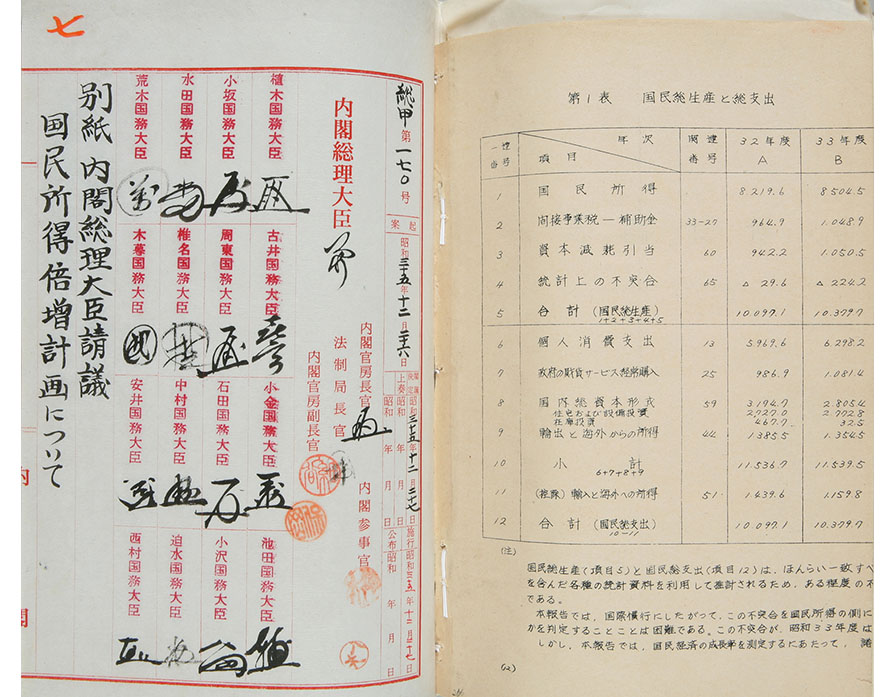 七
総甲第一七〇号
起案 昭和三十五年十二月二十六日
閣議決定 昭和三十五年十二月二十七日
上奏 昭和 年 月 日
施行 昭和三五年十二月二七日
公布 昭和 年 月 日
内閣総理大臣
内閣官房長官
法制局長官
内閣官房副長官
内閣参事官
植木国務大臣
古井国務大臣
小金国務大臣
池田国務大臣
小坂国務大臣
周東国務大臣
石田国務大臣
小沢国務大臣
水田国務大臣
椎名国務大臣
中村国務大臣
迫水国務大臣
荒木国務大臣
木暮国務大臣
安井国務大臣
西村国務大臣
別紙 内閣総理大臣請議
国民所得倍増計画について
内
閣
第1表 国民総生産と総支出
一連番号 年次 項目 関連番号 32年度 A 33年度 B
1 国民所得 8219.6 8504.5
2 間接事業税―補助金 33-27 964.9 1.048.9
3 資本減耗引当 60 942.2 1.050.5
4 統計上の不突合 65 △ 29.6 △ 224.2
5 合計(国民総生産) 10.097.1 10.379.7
1+2+3+4+5
6 個人消費支出 13 5.969.6 6.298.2
7 政府の財貨サービス経常購入 25 986.9 1.081.4
8 国内総資本形式 59 3.194.7 2.805.4
住宅および設備投資 2.727.0 2.772.8
在庫投資 467.7 32.5
9 輸出と海外からの所得 44 1385.5 1.354.5
10 小計 11.536.7 11.539.5
6+7+8+9
11 (控除)輸入と海外への所得 51 1.439.6 1.159.8
12 合計(国民総支出) 10.097.1 10.379.7
10-11
(注)
国民総生産(項目5)と国民総支出(項目12)は、ほんらい一致すべ
を含んだ各種の統計資料を利用して推計されるため、ある程度の不
である。
本報告では、国際慣行にしたがって、この不突合を国民所得の側に
かを判定することことは困難である。この不突合が、昭和33年度は
しかし、本報告では、国民経済の成長率を測定するにあたって、諸
(12)